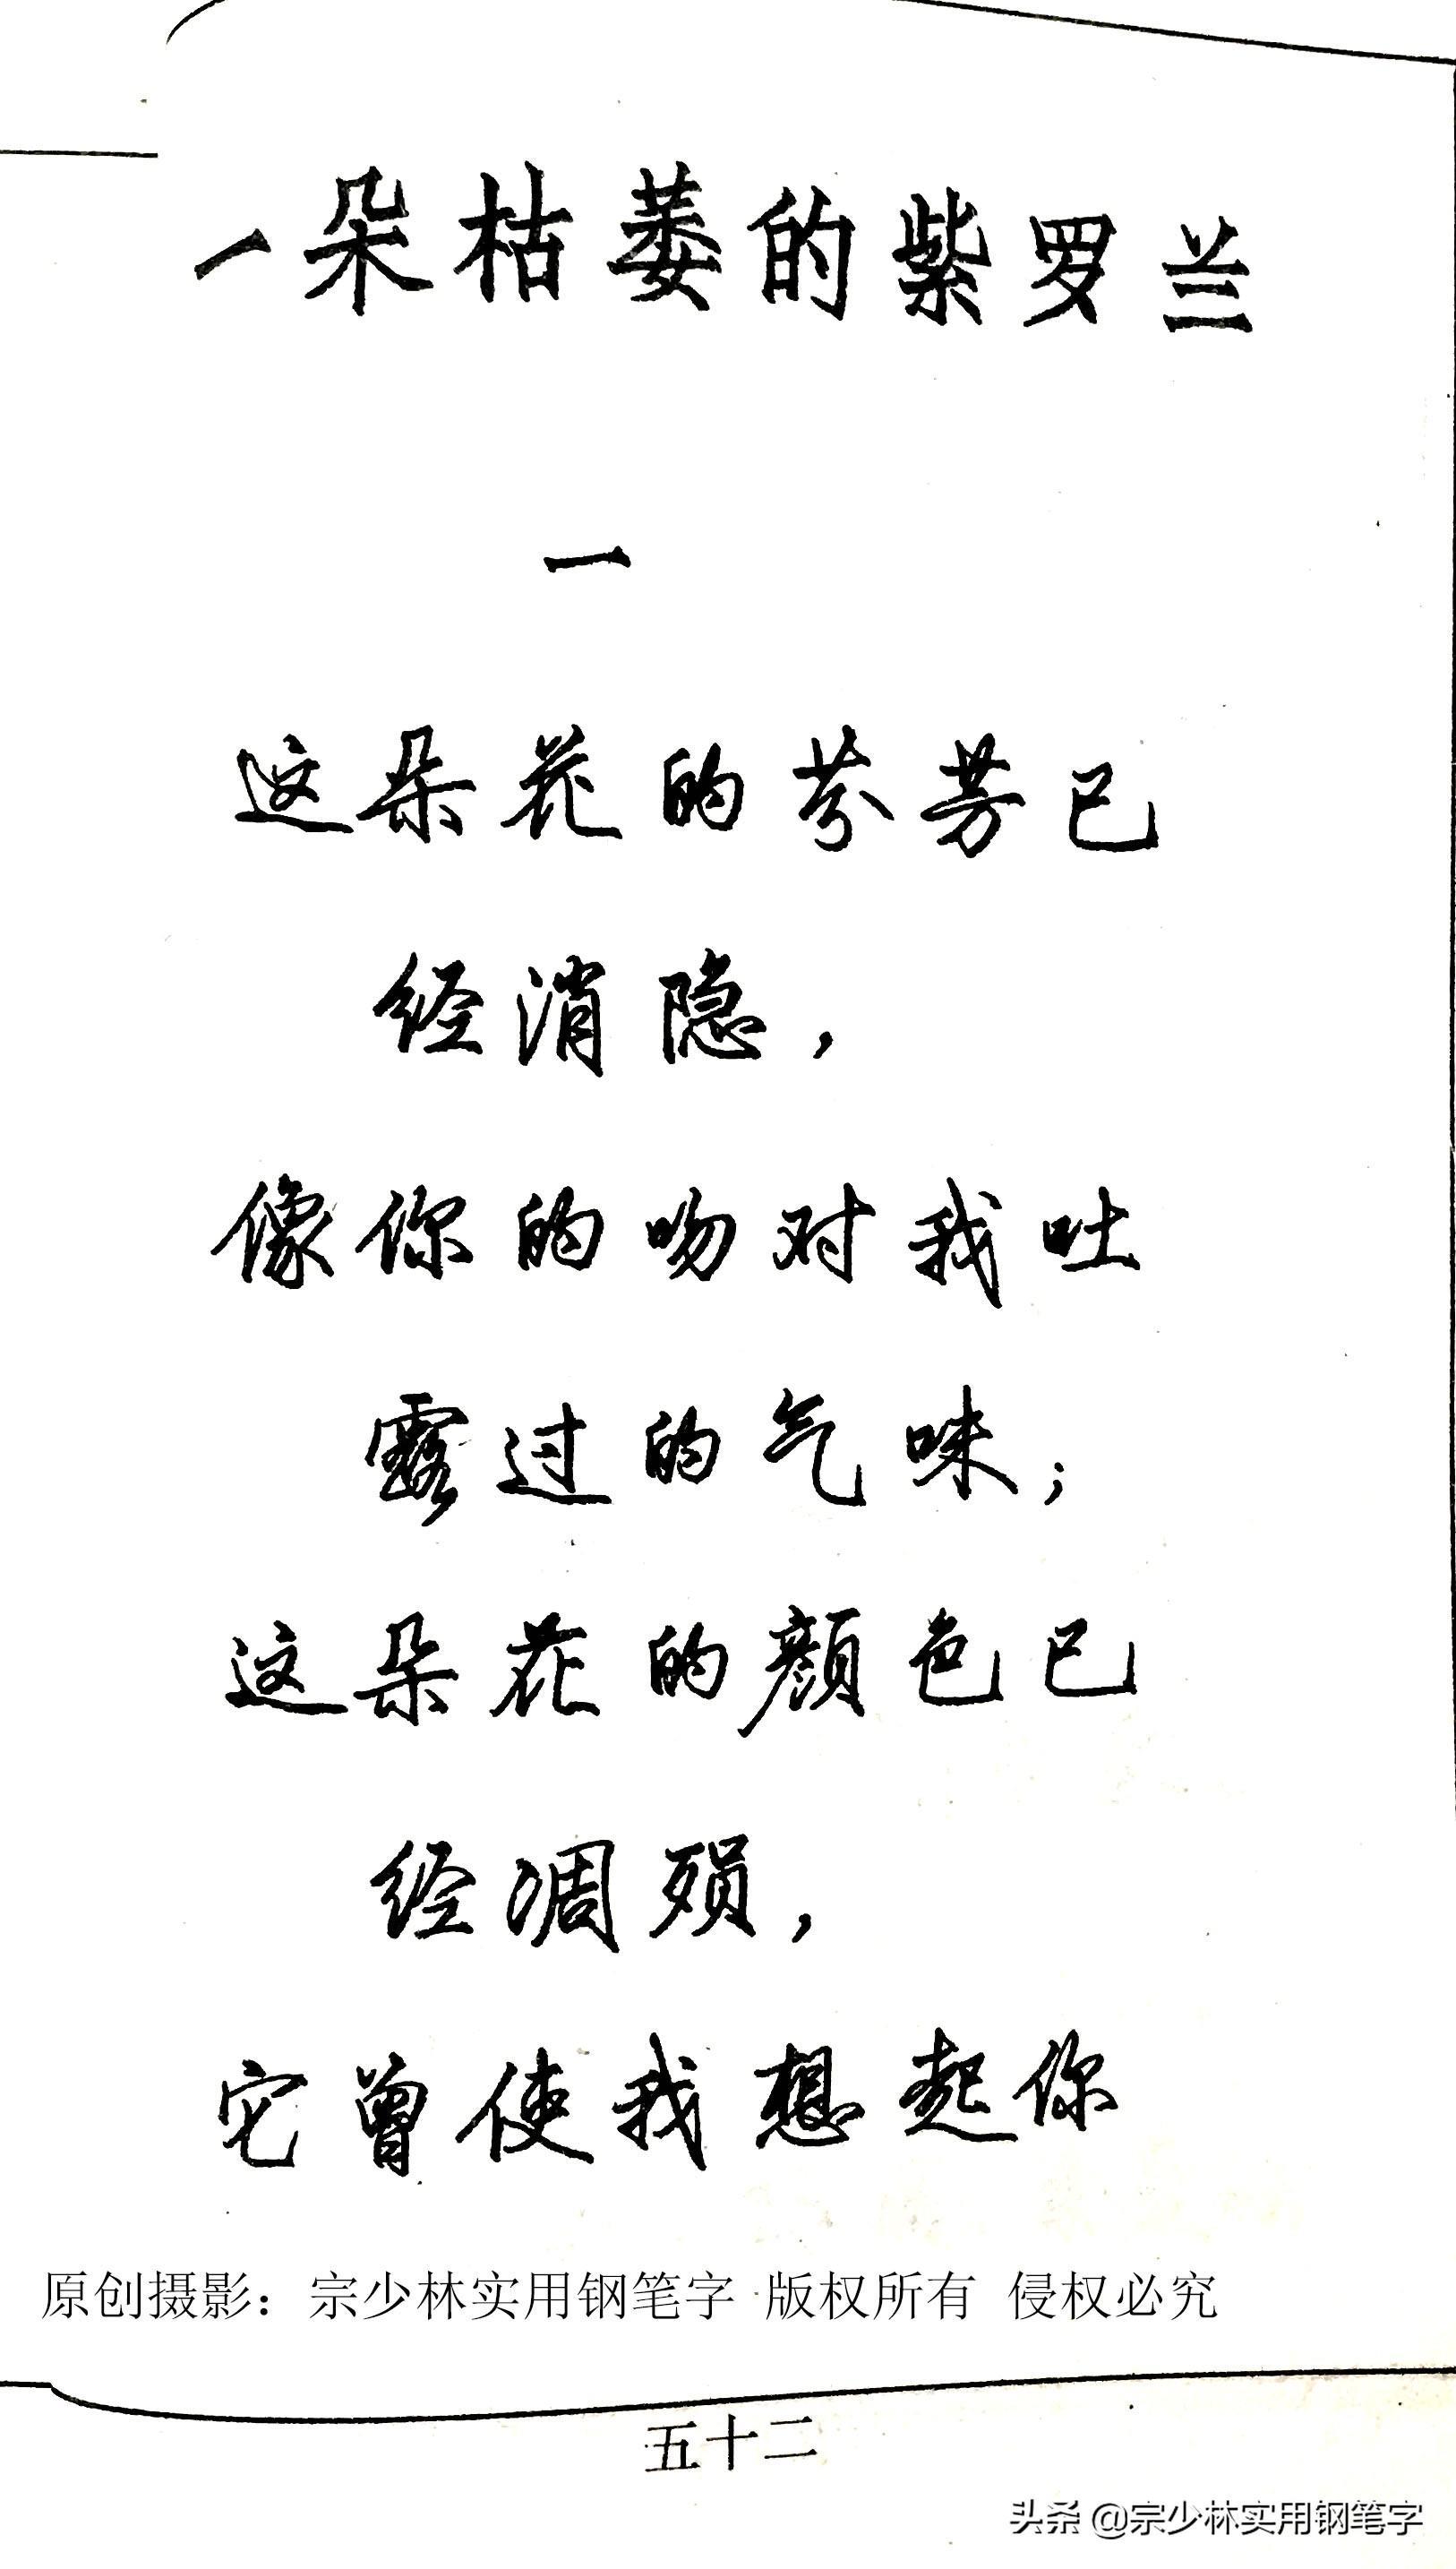 一朵枯萎的紫罗兰
一
这朵花的芬芳已
经消隐，
像你的吻对我吐
露过的气味；
这朵花的颜色已
经凋殒，
它曾使我想起你
原创摄影：宗少林实用钢笔字 版权所有 侵权必究
五十二
头条 @宗少林实用钢笔字